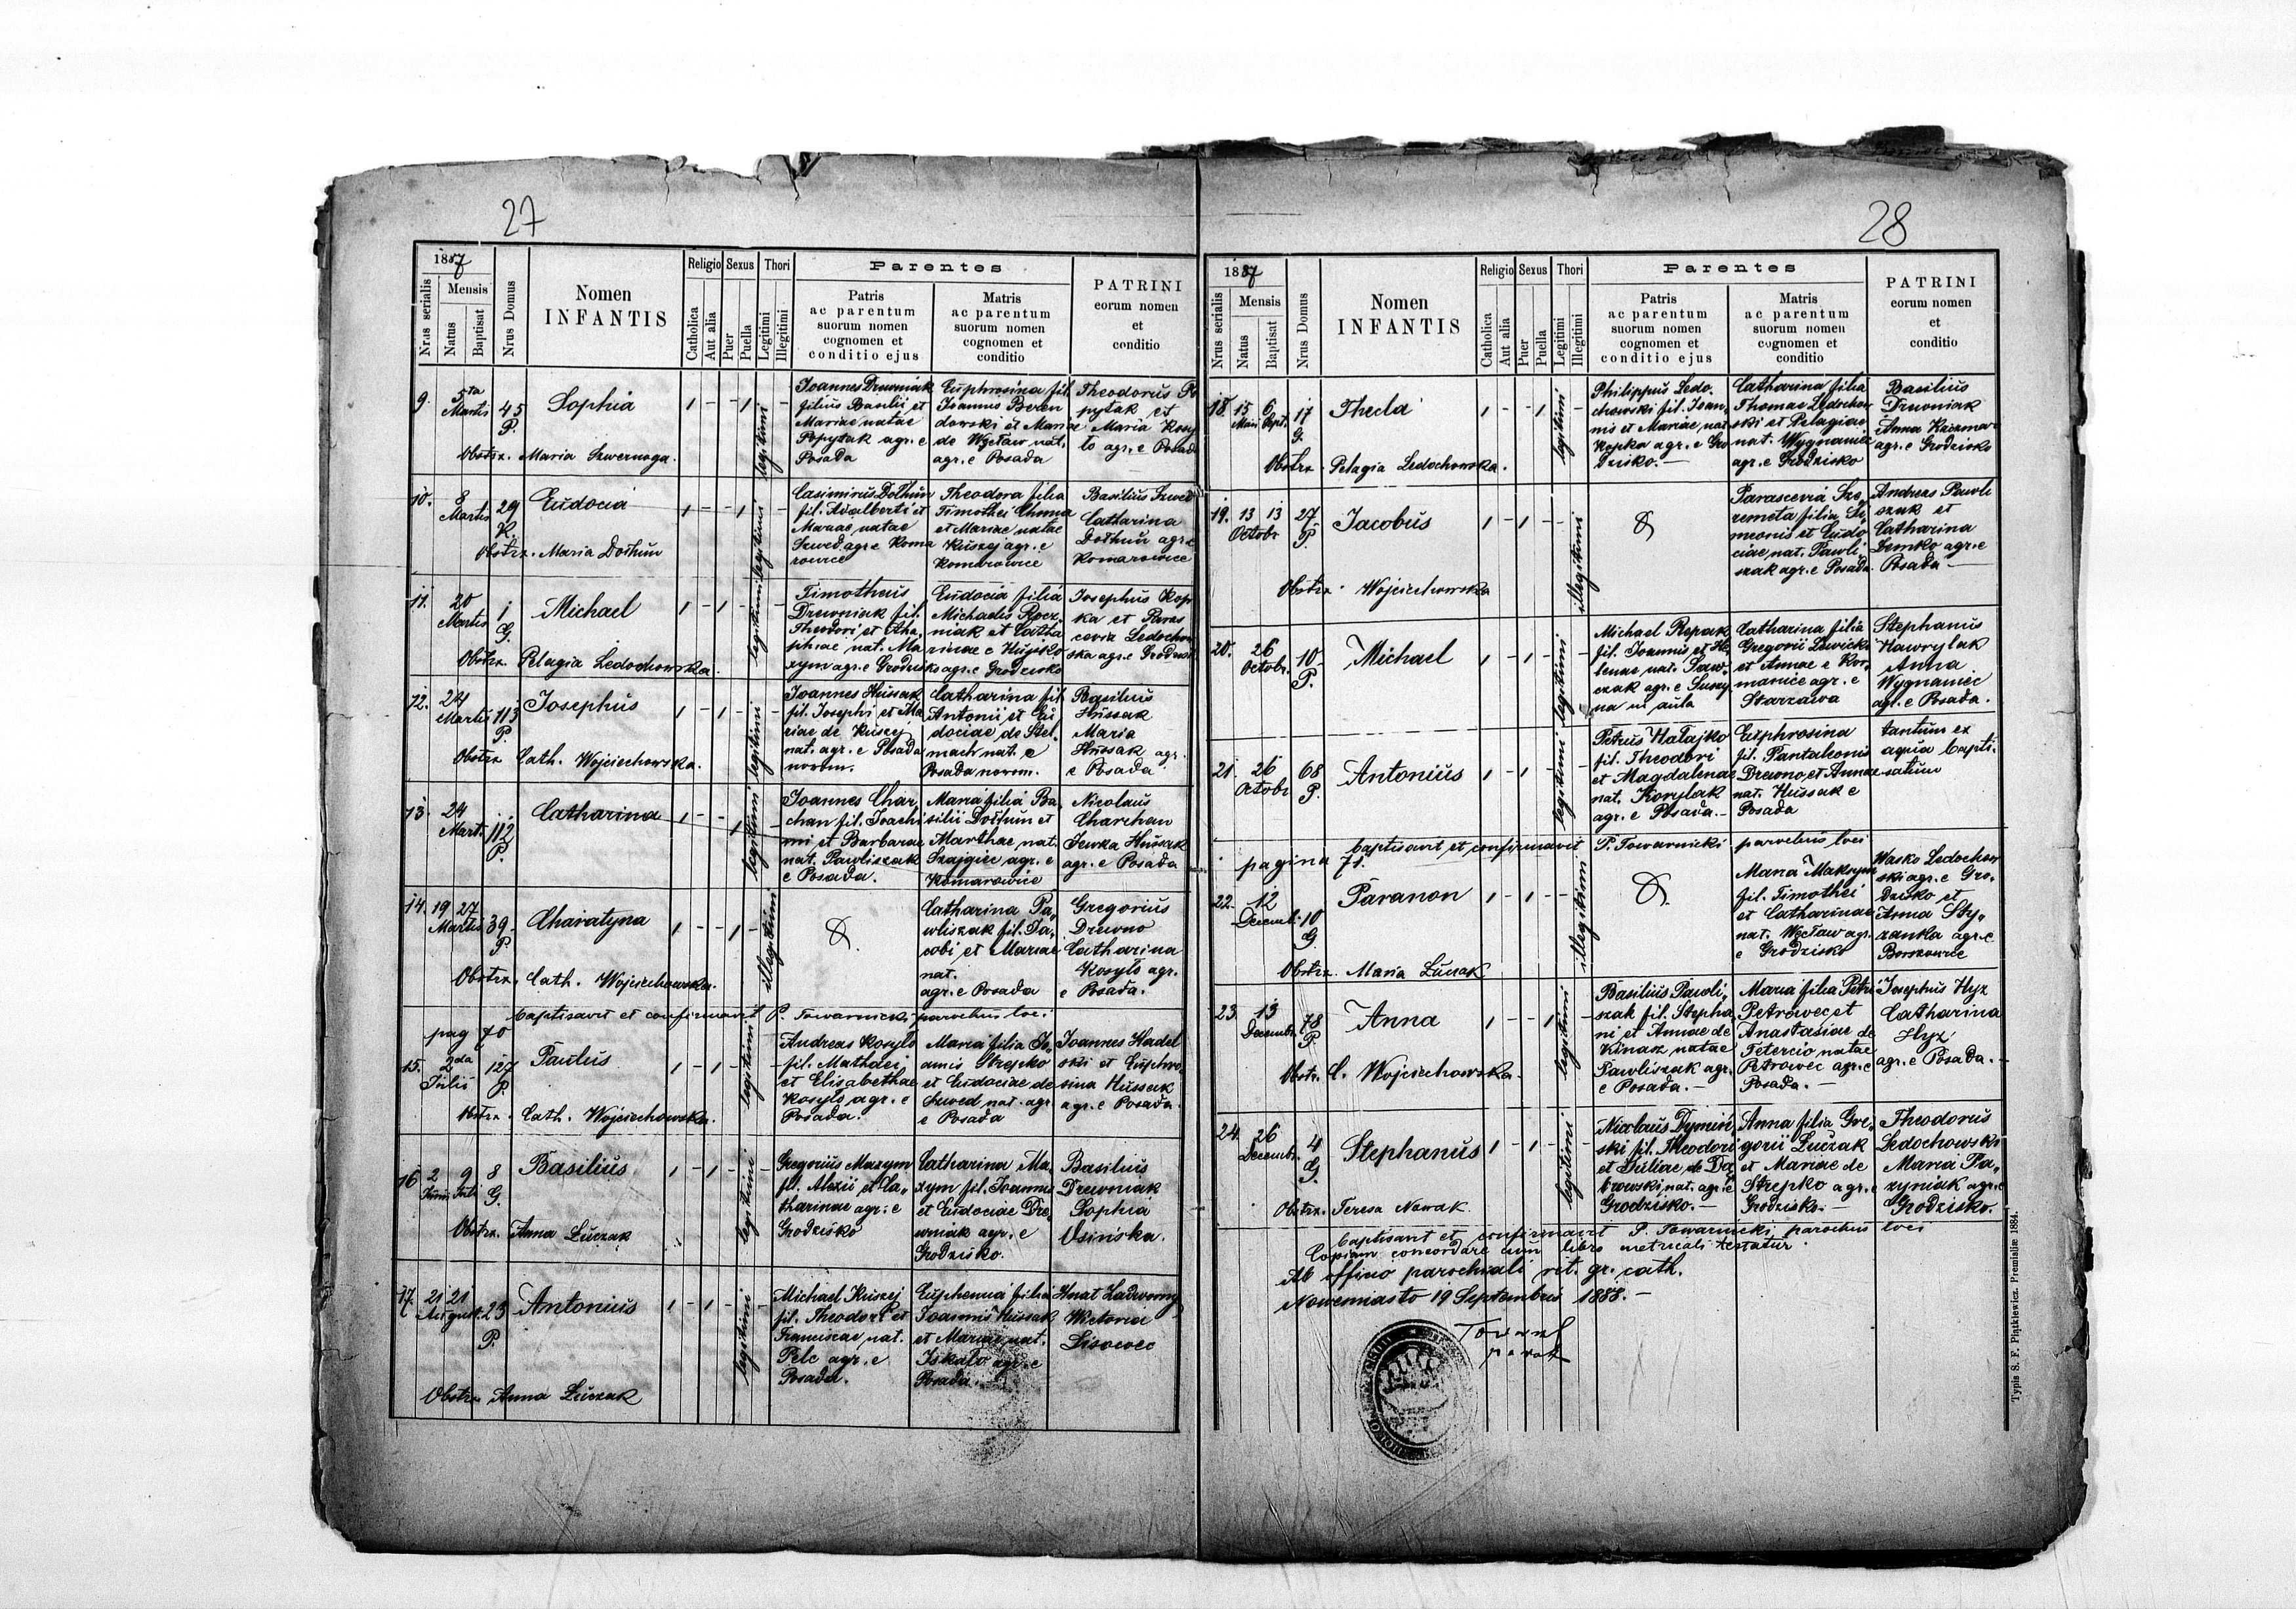 27
1887
Nrus serialis
Mensis
Natus
Baptisat
Nrus Domus
Nomen
INFANTIS
Religio
Catholica
Aut alia
Sexus
Puer
Puella
Thori
Legitimi
Illegitimi
Parentes
Patris
ac parentum
suorum nomen
cognomen et
conditio ejus
Matris
ac parentum
suorum nomen
cognomen et
conditio
PATRINI
eorum nomen
et
conditio
9. 5ta Martis 45 P. Sophia 1 - - 1 legitimi -
Joannes Drewniak
filius Basilii et
Mariae natae
Popytak agr. e
Posada
Euphrosina fil.
Joannis Beren
dowski et Mariae
de Węcław nat.
agr. e Posada
Theodorus Po
pytak et
Maria Kosy
ło agr. e Posada
Obstrx. Maria Szwernoga.
10. 8 Martis 29 K. Eudocia 1 - - 1 legitimi -
Casimirus Dołhun
fil. Adalberti et
Mariae natae
Szwed agr. e Koma
rowice
Theodora filia
Timothei Chuma
et Mariae natae
Kuszej agr. e
Komarowice
Basilius Szwed
Catharina
Dołhun agr. e
Komarowice
Obstrx. Maria Dołhun
11. 20 Martis 1 G. Michael 1 - 1 - legitimi -
Timotheus
Drewniak fil.
Theodori et Aha,
phiae nat. Ma
xym agr. e Grodzisko
Eudocia filia
Michaelis Rocz,
niak et Catha
rinae e Hujsko
agr. e Grodzisko
Josephus Kop
ka et Paras
cevia Ledochow
ska agr. e Grodzisk
Obstrx. Pelagia Ledochowska.
12. 24 Martis 113 P. Josephus 1 - 1 - legitimi -
Joannes Hussak
fil. Josephi et Ma
riae de Kuszej
nat. agr. e Posada
novom.
Catharina fil.
Antonii et Eu
dociae de Stel,
mach nat. e
Posada novom.
Basilius
Hussak
Maria
Hussak agr.
e Posada
Obstrx Cath. Wojciechowska.
13. 24 Mart. 112 P. Catharina 1 - - 1 legitimi -
Joannes Char,
chan fil. Joachi
mi et Barbarae
nat. Pawliszak
e Posada.
Maria filia Ba,
silii Dołhun et
Marthae nat.
Szajgiec agr. e
Komarowice
Nicolaus
Charchan
Jewka Hussak
agr. e Posada
14. 19 27 Martis 39. P. Charatyna 1 - - 1 - illegitimi
Catharina Pa,
wliszak fil. Ja,
cobi et Mariae
nat.
agr. e Posada
Gregorius
Drewno
Catharina
Kosyło agr.
e Posada.
Obstrx. Cath. Wojciechowska.
baptisavit et confirmavit P. Towarnicki parochus loci
pag 70
15. 2da Julii 127 P. Paulus 1 - 1 - legitimi -
Andreas Kosyło
fil. Mathaei
et Elisabethae
Kosyło agr. e
Posada.
Maria filia Jo,
annis Strepko
et Eudociae de
Szwed nat. agr.
e Posada
Joannes Hadel
ski et Euphro,
sina Hussak
agr. e Posada
Obstrx. Cath. Wojciechowska.
16 2 9 Juli 8 G. Basilius 1 - 1 - legitimi -
Gregorius Maxym
fil. Alexii et Ca,
tharinae agr. e
Grodzisko
Catharina Ma,
xym fil. Joannis
et Eudociae Dre,
wniak agr. e
Grodzisko.
Basilius
Drewniak
Sophia
Osińska.
Obstrx. Anna Łuczak
17. 21 21 August. 23 P. Antonius 1 - 1 - legitimi -
Michael Kuszej
fil. Theodori et
Franciscae nat.
Pelc agr. e
Posada.
Euphemia filia
Joannis Hussak
et Mariae nat.
Iskało agr. e
Posada.
Hnat Zadworny
Wictoria
Lisowec
Obstrx Anna Łuczak
28
1887
Nrus serialis
Mensis
Natus
Baptisat
Nrus Domus
Nomen
INFANTIS
Religio
Catholica
Aut alia
Sexus
Puer
Puella
Thori
Legitimi
Illegitimi
Parentes
Patris
ac parentum
suorum nomen
cognomen et
conditio ejus
Matris
ac parentum
suorum nomen
cognomen et
conditio
PATRINI
eorum nomen
et
conditio
18. 15 6 Sept. 17 G. Thecla 1 - - 1 legitimi -
Philippus Ledo,
chowski fil. Joan,
nis et Mariae, nat
Kopka agr. e Gro
dzisko. -
Catharina filia
Thomae Ledochow
ski et Pelagiae
nat. Wygnaniec
agr. e Grodzisko
Basilius
Drewniak
Anna Kuczma
agr. e Grodzisko
Obstrx. Pelagia Ledochowska.
19. 13 13 Octobr 27 P. Jacobus 1 - 1 - - illegitimi
Parascevia Sze,
remeta filia Si,
meonis et Eudo
ciae nat. Pawli
szak agr. e Posada.
Andreas Pawli
szak et
Catharina
Demko agr. e
Posada -
Obstrx. Wojciechowska
20. 26 Octobr. 10 P. Michael 1 - 1 - legitimi -
Michael Repak
fil. Joannis et He
lenae nat. Saw,
czak agr. e Suszy
na in aula
Catharina filia
Gregorii Lewicki
et Annae e Kor,
manice agr. e
Starzawa
Stephanus
Hawrylak
Anna
Wygnaniec
agr. e Posada.
21. 26 Octobr 68 P. Antonius 1 - 1 - legitimi -
Petrus Hałajko
fil. Theodori
et Magdalenae
nat. Korylak
agr. e Posada. -
Euphrosina
fil. Pantaleonis
Drewno, et Annae
nat. Hussak e
Posada
tantum ex
aqua bapti-
satum
baptisavit et confirmavit P. Towarnicki parochus loci
pagina 71.
22. 12 Decemb. 10 G Paranon 1 - 1 - - illegitimi
Maria Maksym
fil. Timothei
et Catharinae
nat. Węcław agr.
e Grodzisko
Wasko Ledochow
ski agr. e Gro,
dzisko et
Anna Sty,
ranka agr. e
Borszowice
Obstrx. Maria Łuczak
23. 13 Decembr. 78 P Anna 1 - - 1 legitimi -
Basilius Pawli,
szak fil. Stepha,
ni et Annae de
Kinasz natae
Pawliszak agr.
e Posada. -
Maria filia Petri
Petrowec et
Anastasiae de
Fetercio natae
Petrowec agr. e
Posada. -
Josephus Hyz
Catharina
Hyz
agr. e Posada. -
Obstr. C. Wojciechowska.
24. 26 Decembr. 4 G. Stephanus 1 - 1 - legitimi -
Nicolaus Dymiń
ski fil. Theodori
et Juliae, de Dą
browski nat. agr. e
Grodzisko. -
Anna filia Gre,
gorii Łuczak
et Mariae de
Strepko agr. e
Grodzisko. -
Theodorus
Ledochowski
Maria Pa,
zyniak agr. e
Grodzisko.
Obstrx. Teresa Nowak.
baptisavit et confirmavit P. Towarnicki parochus loci
Copiam concordare cum libro metricali testatur.
Ab officio parochiali rit. gr. cath.
Nowemiasto 19 Septembris 1888. -
Typis S. F. Piątkiewicz. Premisliæ 1884.